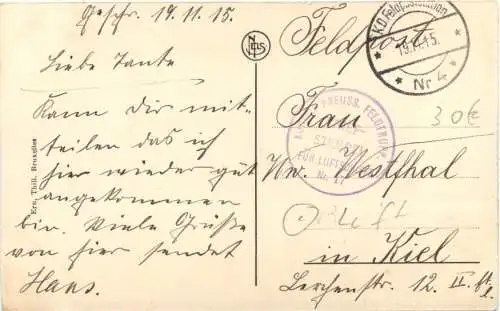 Geschr. 14.11.15.
Liebe Tante
Kann Dir mit-
teilen das ich
hier wieder gut
angekommen
bin. Viele Grüße
von hier sendet
Hans.
Ern. Thill. Bruxelles
NELS
Feldpost
K.D. Feldpoststation
15.
Nr 4
PREUSS.
FÜR LUFT
Nr. 17
30€
Frau
Ww. Westfhal
in Kiel
Lerchenstr. 12. II. Et.